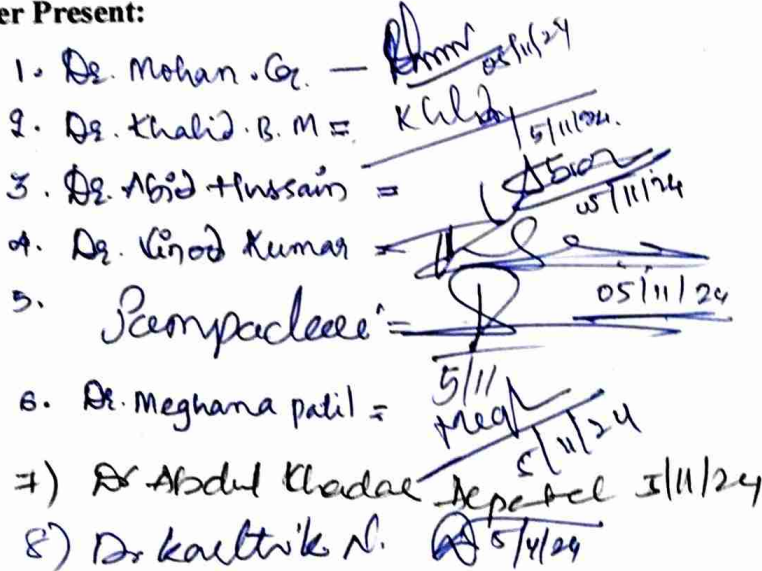 er Present:
1. Dr. Mohan. G. — 05/11/24
2. Dr. Khalid. B. M = Khalid 5/11/24.
3. Dr. Abid Hussain = Abid 05/11/24
4. Dr. Vinod Kumar = 05/11/24
5. =
5/11
6. Dr. Meghana patil = Megh 5/11/24
7) Dr Abdul Khadar 5/11/24
8) Dr Karthik N. 5/11/24